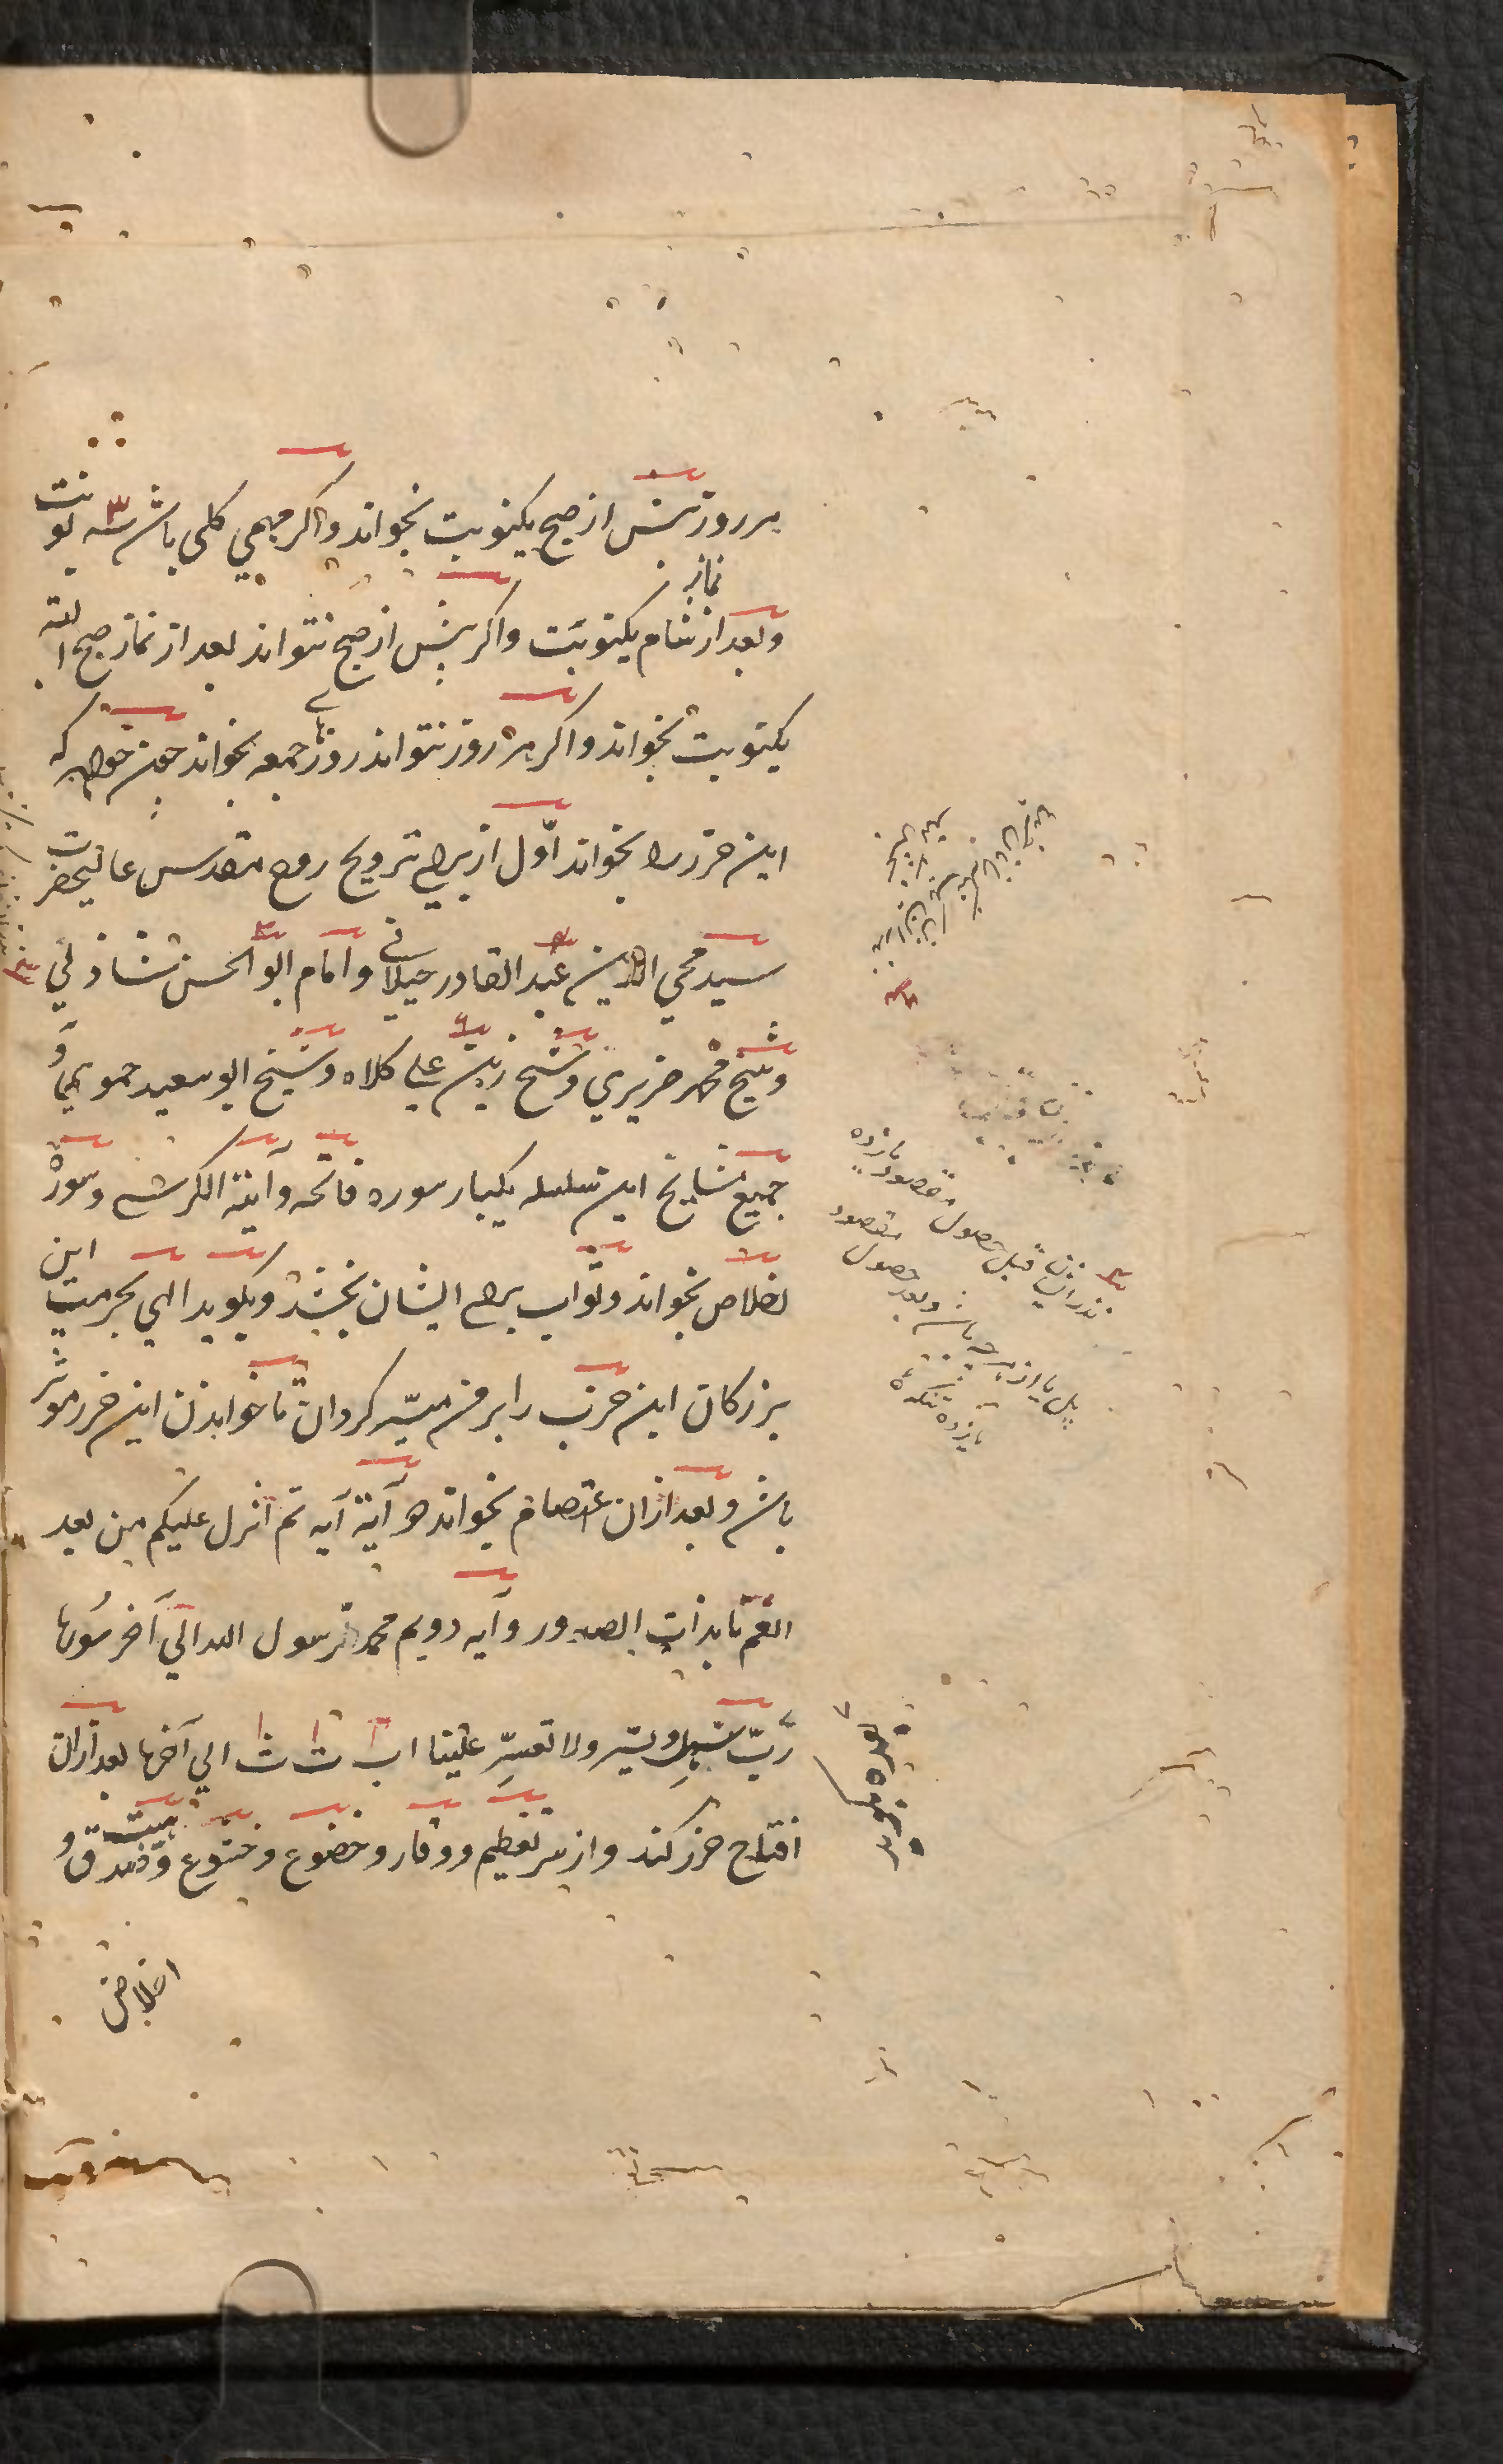 هر روز پیش از صبح یکنوبت بخواند و اکر مهمی کلی باشد سه نوبت
و بعد از نماز شام یکنوبت و اکر پیش از صبح نتواند بعد از نماز صبح البته
یکنوبت بخواند و اکر هر روز نتواند روزهای جمعه بخواند چون خواهد که
این حرز را بخواند اوّل از برای ترویح روح مقدس عالیحضرت
سید محي الدین عبد القادر جیلانی و امام ابو الحسن شاذلي
و شیخ محمد جزیري و شیخ زین علي کلاه و شیخ ابو سعید حمویی و
جمیع مشایخ این سلسله یکبار سوره فاتحه و آیة الکرسی و سورۀ
اخلاص بخواند و ثواب برای ایشان بخشد و بکوید الهی بحرمت این
بزرکان این حزب را بر من میسّر کردان تا خواندن این حرز موثر
باشد و بعد از ان اعتصام بخواند دو آیة آیه ثم انزل علیکم من بعد
الغم تا بذات الصدور و آیه دویم محمد رسول الله الی آخر سورها
ربّ سهل و یسّر ولا تعسّر علینا ا ب ت ث الي آخرها بعد ازان
افتتاح حرز کند و از سر تعظیم و وقار و خضوع و خشوع و هیبت و صدق و
اخلاص
نذر ان قبل حصول مقصود یازده
و بعد حصول مقصود
یازده تنکه